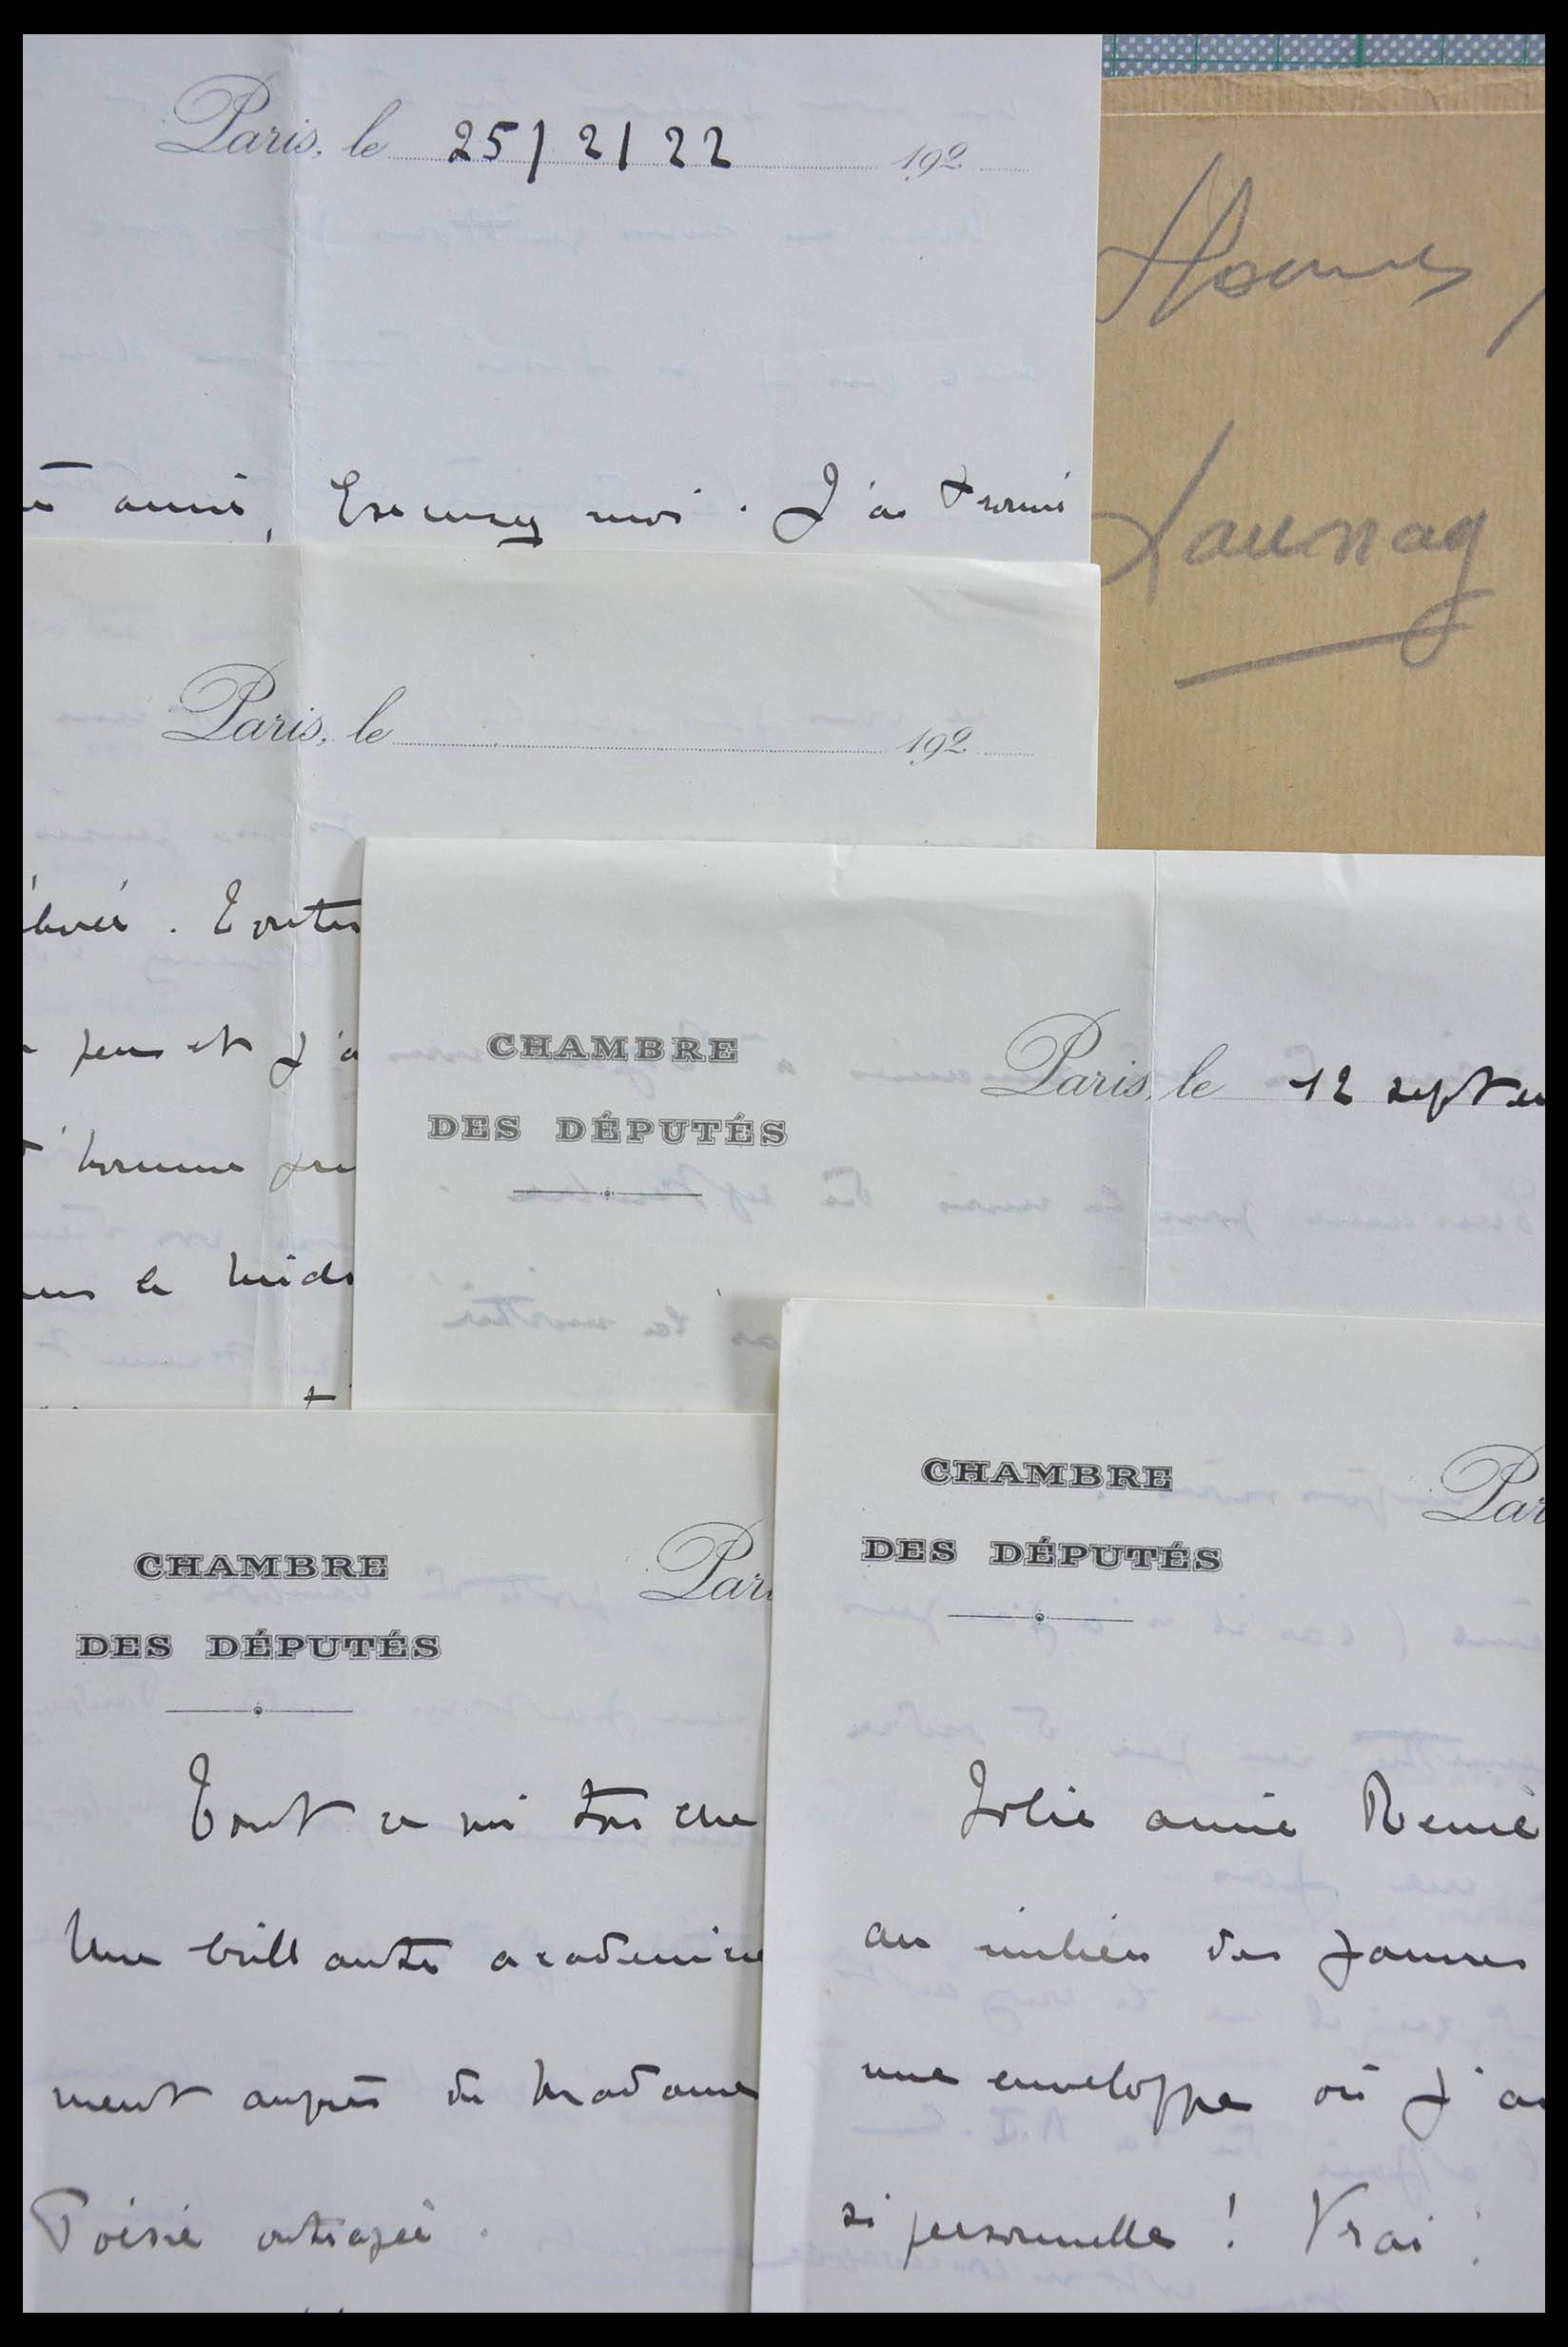 Paris, le 25/2/22 192
amie, Excusez moi. J'ai
Launay
Paris, le 192
. Toutes
peu et j'a
homme
le
CHAMBRE
DES DÉPUTÉS
Paris, le 12 septem
CHAMBRE
DES DÉPUTÉS
Pari
Tout ce qui
Une brillante académicie
ment auprès de Madame
Poésie outragée.
CHAMBRE
DES DÉPUTÉS
Par
Jolie amie Renée
au milieu des
une enveloppe où j'ai
si personnelle ! Vrai !